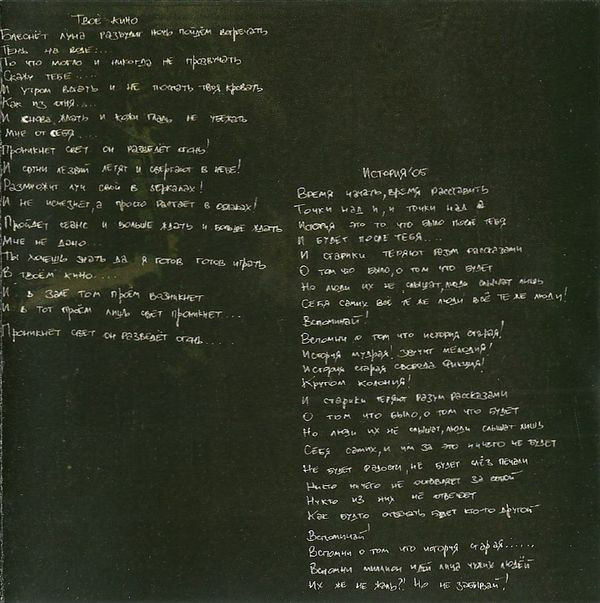 Твоё кино
Блеснёт луна разбудит ночь пойдём встречать
Тень на воде....
То что могло и никогда не прозвучать
Скажу тебе....
И утром встать и не поспать твоя кровать
Как из огня....
И снова ждать и кожи гладь не убежать
Мне от себя....
Проникнет свет он разведёт огонь!
И сотни лезвий летят и сверкают в небе!
Размножит луч свой в зеркалах!
И не исчезнет, а просто растает в облаках!
Пройдёт сеанс и больше ждать и больше ждать
Мне не дано...
Ты хочешь знать да я готов готов играть
В твоём кино.....
И в зале том проём возникнет
И в тот проём лишь свет проникнет...
Проникнет свет он разведёт огонь...
История'05
Время начать, время расставить
Точки над и, и точки над а
История это то что было после тебя
И будет после тебя....
И старики теряют разум рассказами
О том что было, о том что будет
Но люди их не слышат, люди слышат лишь
Себя самих всё те же люди всё те же люди!
Вспоминай!
Вспомни о том что история старая!
История мудрая, звучит мелодия!
История старая свобода фикция!
Кругом колония!
И старики теряют разум рассказами
О том что было, о том что будет
Но люди их не слышат, люди слышат лишь
Себя самих, и им за это ничего не будет
Не будет радости, не будет слёз печали
Никто ничего не оставляет за собой
Никто из них не отвечает
Как будто отвечать будет кто-то другой
Вспоминай!
Вспомни о том что история старая......
Вспомни миллион идей лица чужих людей
Их же не жаль?! Но не забывай!